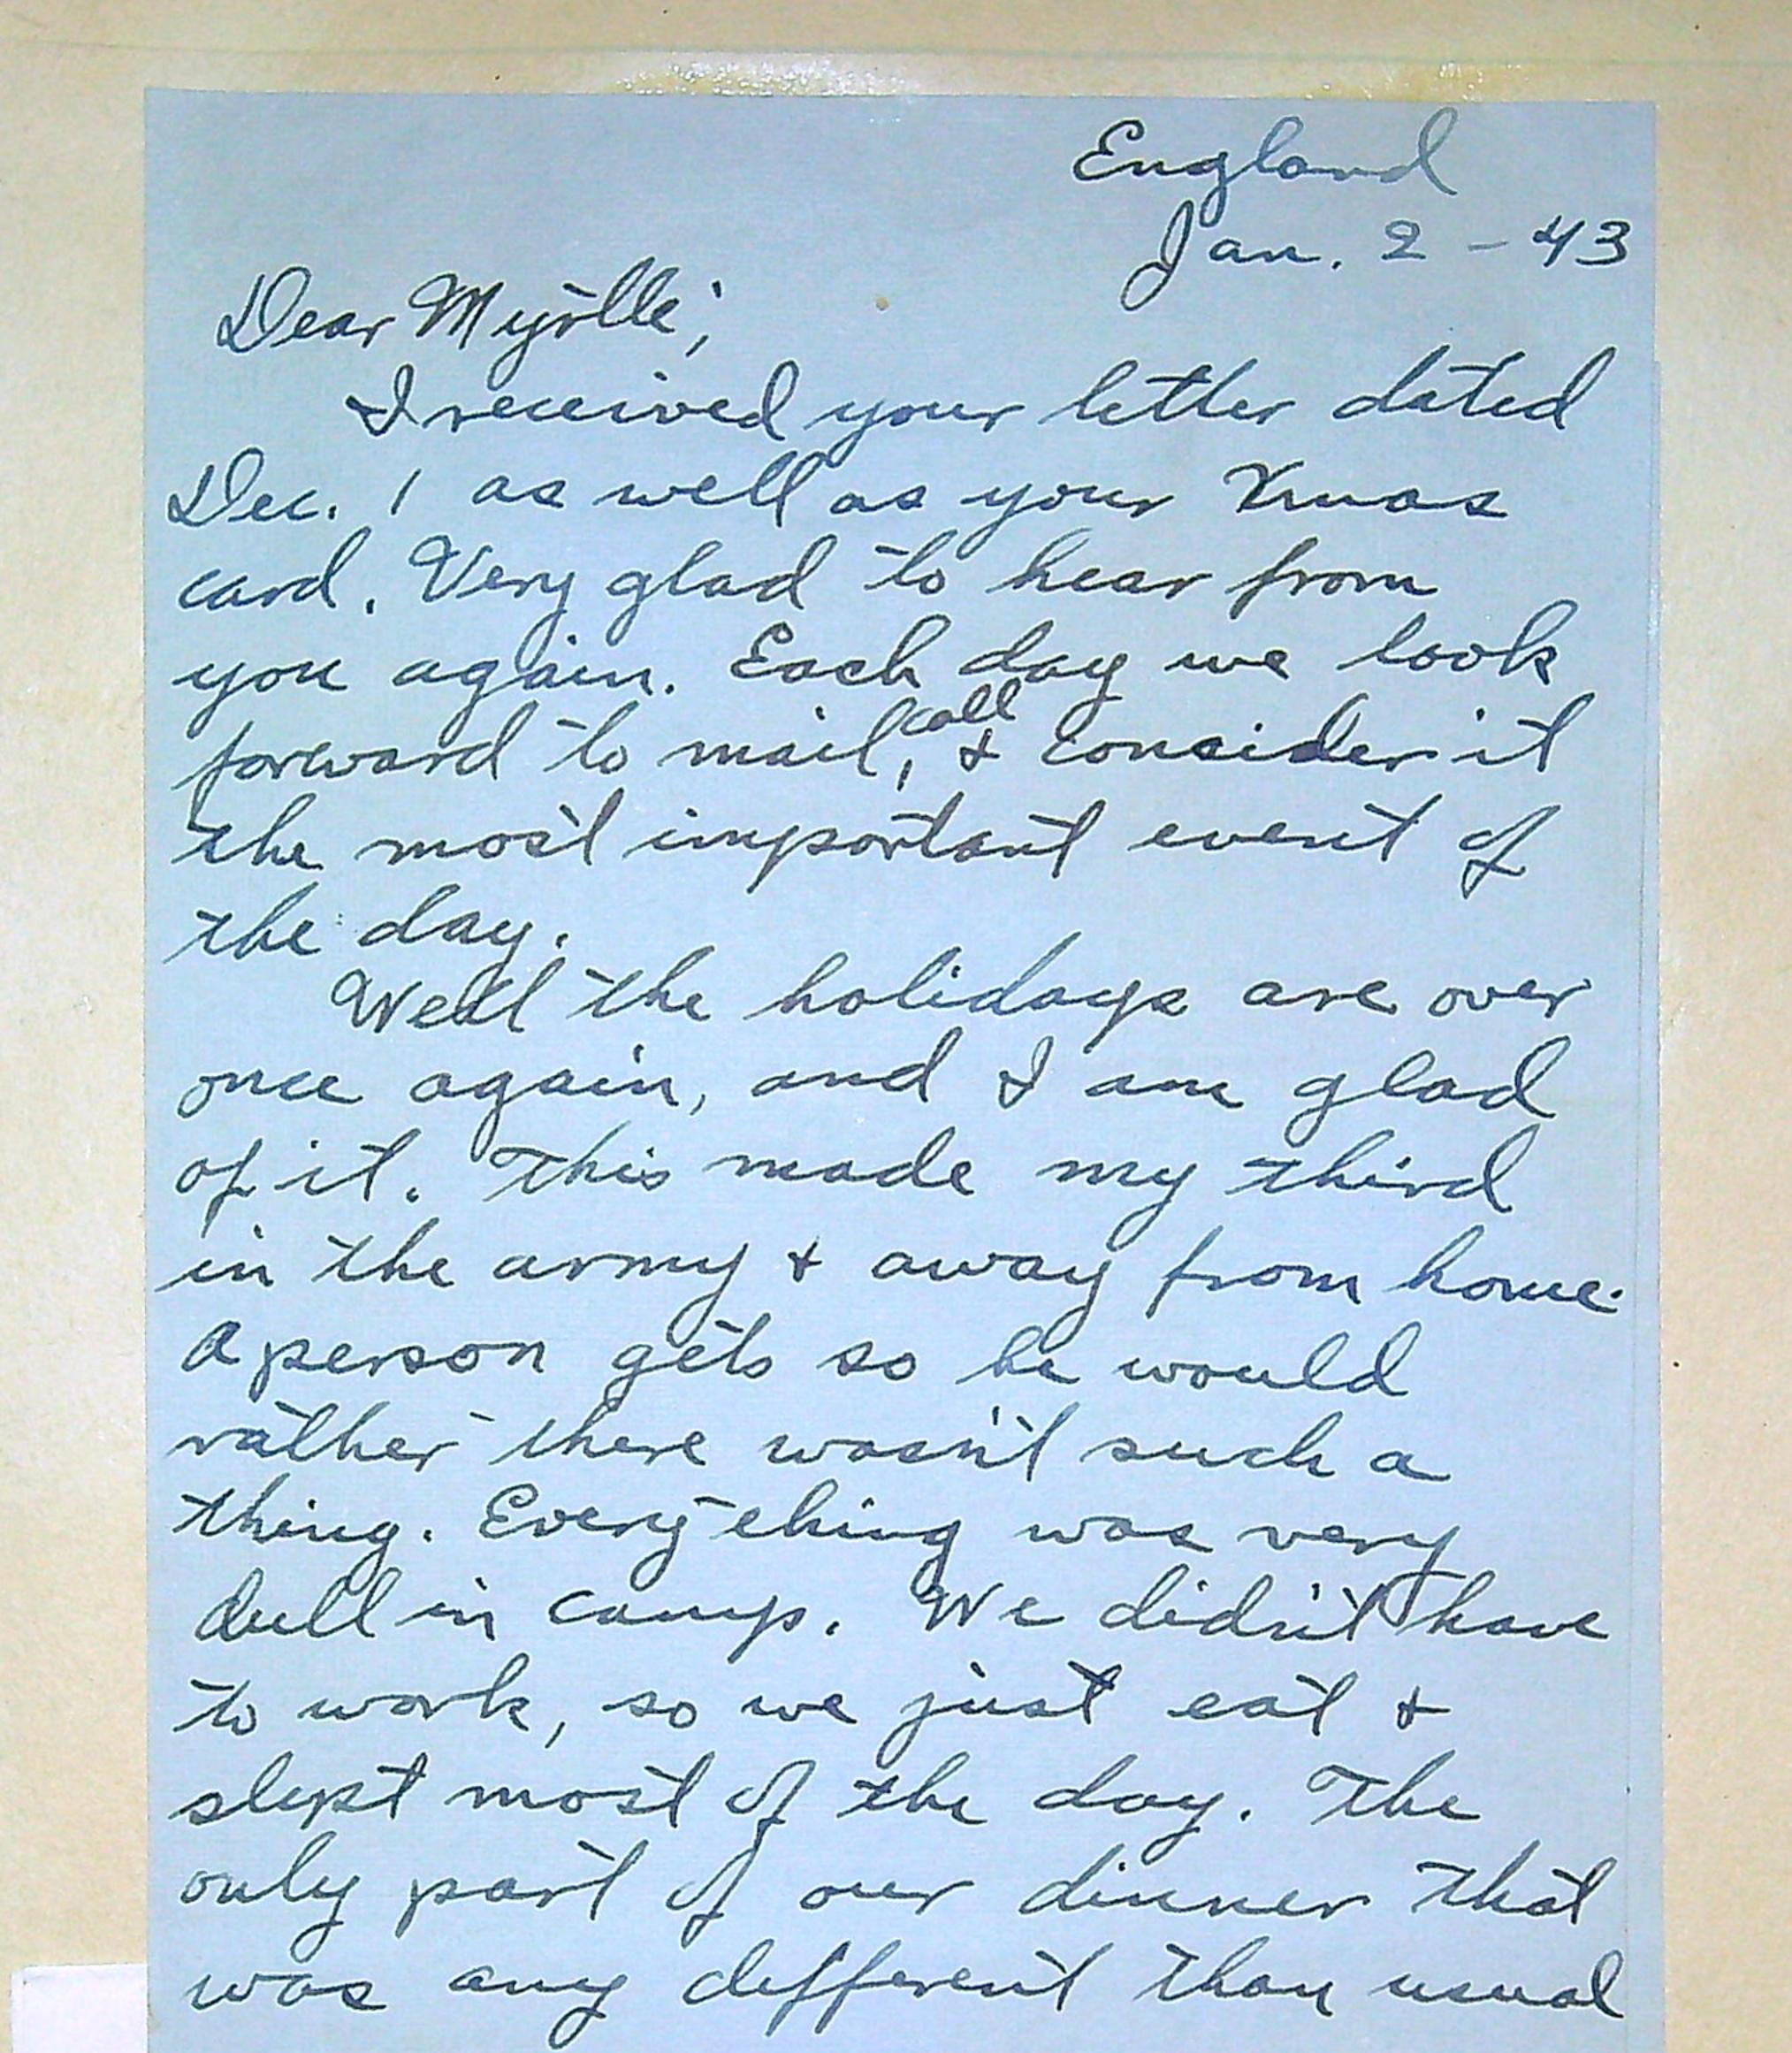 England
Jan. 2 - 43
Dear Myrtle;
I received your letter dated
Dec. 1 as well as your Xmas
card. Very glad to hear from
you again. Each day we look
forward to mail, call & consider it
the most important event of
the day.
Well the holidays are over
once again, and I am glad
of it. This made my third
in the army & away from home.
A person gets so he would
rather there wasn't such a
thing. Everything was very
dull in camp. We didn't have
to work, so we just eat &
slept most of the day. The
only part of our dinner that
was any different than usual